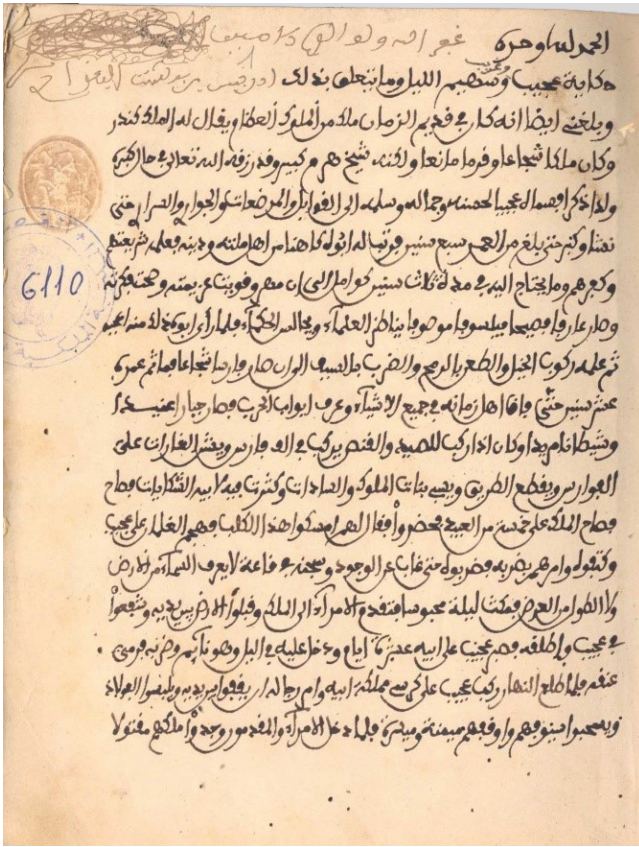 الحمد لله وحده غفر الله ولوالديه امين
حكاية عجيب وغريب وسهيم الليل وما يتعلق بذلك ادريس بن
وبلغني ايضا انه كان في قديم الزمان ملك من الملوك العظام يقال له الملك كندر
وكان ملكا شجاعا وقرما مانعا ولكنه شيخ هرم كبير وقد رزقه الله تعالى في حال كبره
ولدا ذكرا فسماه عجيبا لحسنه وجماله وسلمه الى القوابل والمرضعات والجوار والسرار حتى
نشا وكبر حتى بلغ من العمر سبع سنين فرتب له ابوه كاهنا من اهل ملته ودينه فعلمه شريعتهم
وكفرهم وما يحتاج اليه في مدة ثلاث سنين كوامل الى ان مهر وقويت عزيمته وصحت فكرته
وصار عارفا فصيحا فيلسوفا موصوفا يناظر العلماء ويجالس الحكماء فلما رأى ابوه ذلك منه اعجبه
ثم علمه ركوب الخيل والطعن بالرمح والضرب بالسيف الى ان صار فارسا شجاعا فما تم عمره
عشر سنين حتى فاق اهل زمانه في جميع الاشياء وعرف ابواب الحرب فصار جبارا عنيدا
وشيطانا مريدا وكان اذا ركب للصيد والقنص يركب في الف فارس ويشن الغارات على
الفوارس ويقطع الطريق ويسبي بنات الملوك والسادات وكثرت فيه لابيه الشكايات فصاح
فصاح الملك على خمسة من العبيد فحضروا فقال لهم امسكوا هذا الكلب فهجم الغلمان على عجيب
وكتفوه وامرهم بضربه فضربوه حتى غاب عن الوجود وسجنه في قاعة لا يعرف السماء من الارض
ولا الطول من العرض فمكث ليلة محبوسا فتقدم الامراء الى الملك وقبلوا الارض بين يديه وشفعوا
في عجيب واطلقه فصبر عجيب على ابيه عشرة ايام ودخل عليه في اليل وهو نايم وضربه فرمى
عنقه فلما طلع النهار ركب عجيب على كرسي مملكة ابيه وامر رجاله ان يقفوا بين يديه ويلبسوا الفولاد
ويسحبوا سيوفهم واوقفهم ميمنة وميسرة فلما دخل الامراء والمقدمون وجدوا ملكهم مقتولا
6110